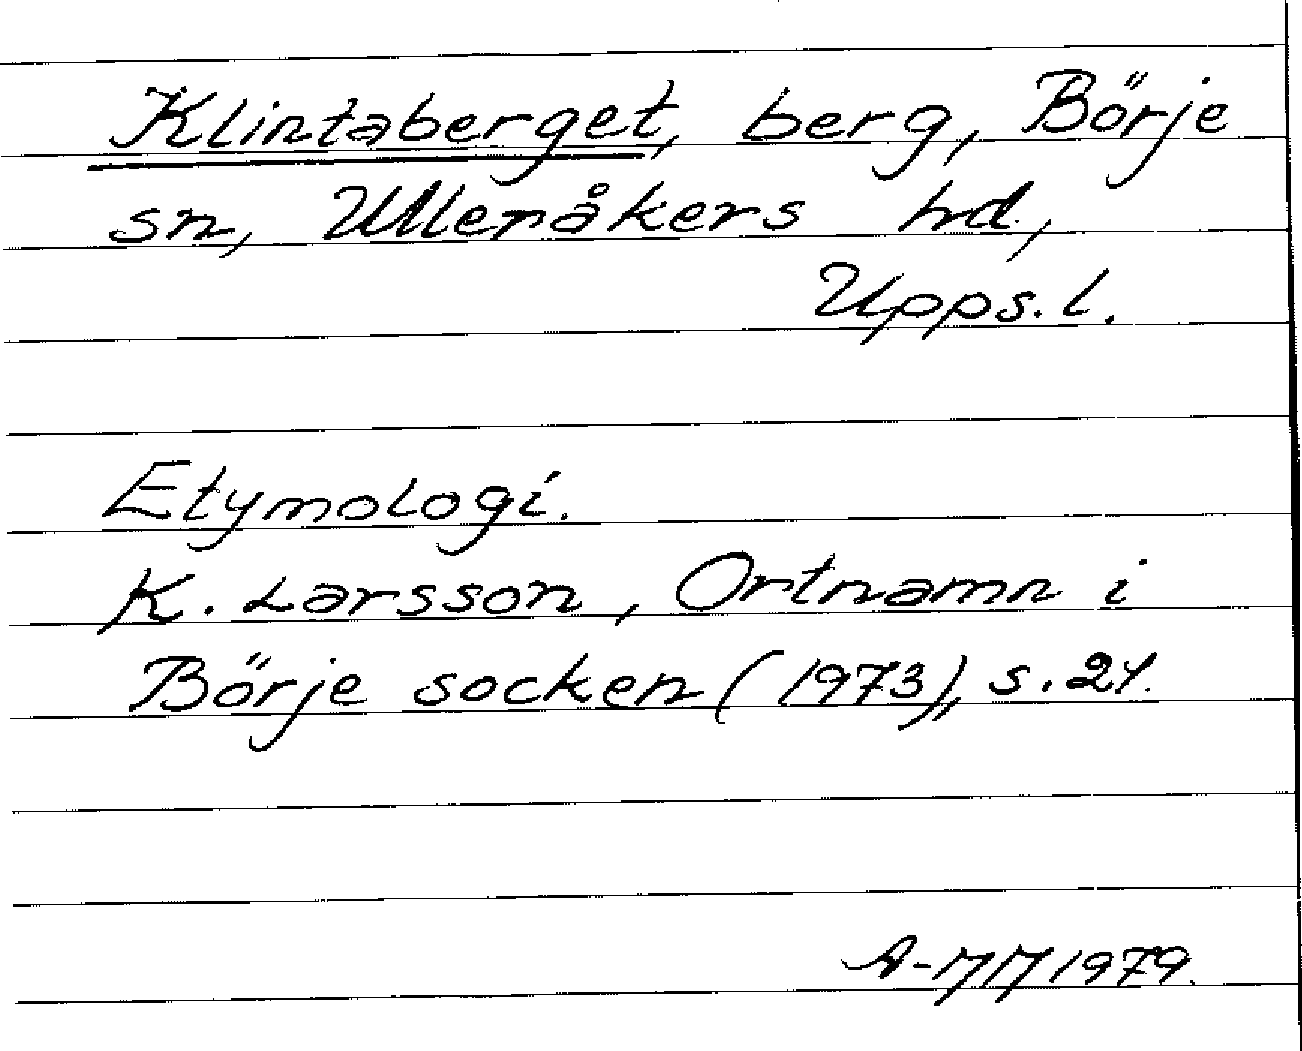 Klintaberget, berg, Börje
sn, Ulleråkers hd,
Upps. l.
Etymologi.
K. Larsson, Ortnamn i
Börje socken (1973), s. 24.
A-M M 1979.